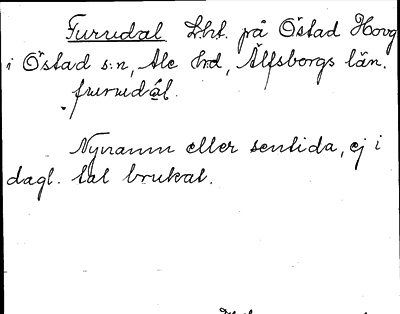 Furudal Lht. på Östad Hovg
i Östad s:n, Ale hd, Älfsborgs län.
furudál.
Nynamn eller sentida, ej i
dagl. tal brukat.